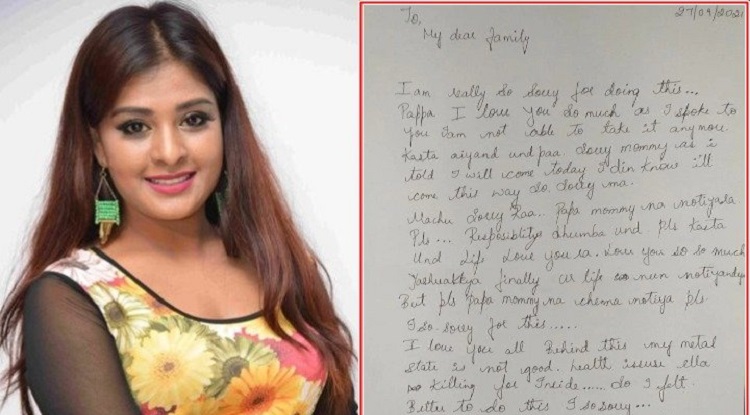 27/09/2021
To,
My dear family
I am really so sorry for doing this...
Pappa I love you so much as I spoke to
you I am not able to take it anymore.
Kasta aiyand und paa. Sorry mommy as i
told I will come today I din know i'll
come this way so. Sorry ma.
Machu sorry Raa.. Papa mommy na notiyala
Pls... Responsiblitys dhumba und pls kasta
Und life Love you ra. Love you so so much
finally life nun notiyandya
But pls Papa mommy na chenna notiya pls.
I so sorry for this.....
I love you all Behind this my metal
state is not good. health issuse ella
Killing for Inside..... So I felt.
Better to do this I so sorry...